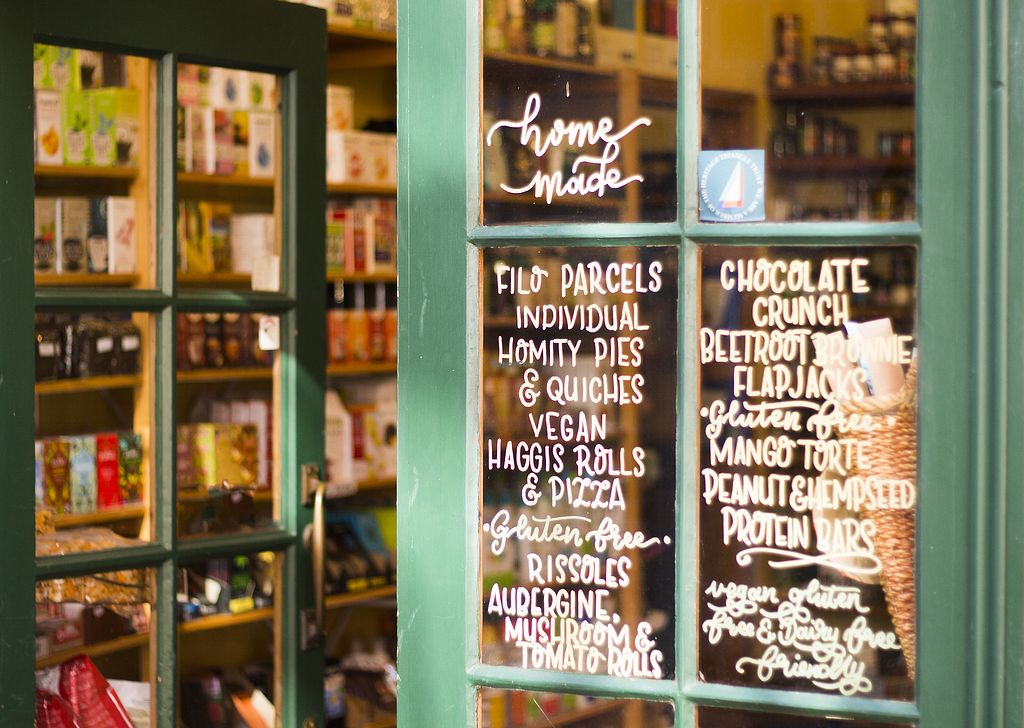 home
made
FILO PARCELS
INDIVIDUAL
HOMITY PIES
& QUICHES
VEGAN
HAGGIS ROLLS
& PIZZA
·Gluten free·
RISSOLES
AUBERGINE,
MUSHROOM &
TOMATO ROLLS
CHOCOLATE
CRUNCH
BEETROOT BROWNIE
FLAPJACKS
·Gluten free·
MANGO TORTE
PEANUT & HEMPSEED
PROTEIN BARS
vegan gluten
free & Dairy free
friendly